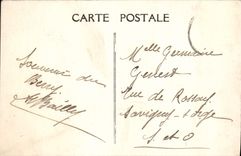 CARTE POSTALE
Souvenir du
Berry
ABailly
Melle Germaine
Genest
Rue de Rossay
Savigny s orge
S. et O